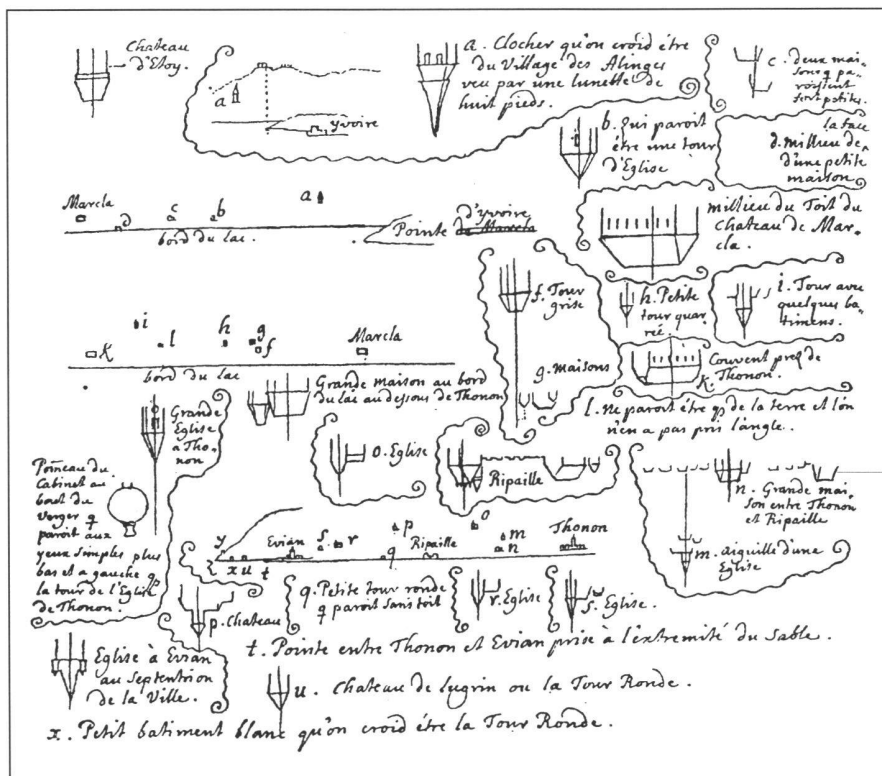 Chateau
d'Etoy.
a
yvoire
a. Clocher qu'on croid être
du Village des Alinges
veu par une lunette de
huit pieds.
c. deux mai-
sons q pa-
roissent
fort petites.
b. qui paroit
être une tour
d'Eglise
la face
d. millieu de
d'une petite
maison
Marcla
d
c
b
a
bord du lac.
Pointe de Marcla
d'yvoire
millieu du Toit du
Chateau de Mar-
cla.
f. Tour
grise
h. Petite
tour quar-
reé.
i. Tour avec
quelques ba-
timens.
K
i
l
h
g
f
Marcla
bord du lac
g. maisons
Couvent pres de
K. Thonon.
l. Ne paroit être q de la terre et l'on
n'en a pas pris l'angle.
Grande
Eglise
a Tho-
non
Grande maison au bord
du lac au dessous de Thonon
o. Eglise
Ripaille
n. Grande mai-
son entre Thonon
et Ripaille
m. aiguille d'une
Eglise
Pomeau du
Cabinet au
bout du
Verger q
paroit aux
yeux simples plus
bas et a gauche q
la tour de l'Eglise
de Thonon.
y
x
u
t
Evian
s
r
q
p
Ripaille
o
m
n
Thonon
p. Chateau
q. Petite tour ronde
q paroit sans toit
r. Eglise
s. Eglise.
t. Pointe entre Thonon et Evian prise à l'extremité du Sable.
Eglise à Evian
au Septentrion
de la Ville.
u. Chateau de lugrin ou la Tour Ronde.
x. Petit batiment blanc qu'on croid être la Tour Ronde.